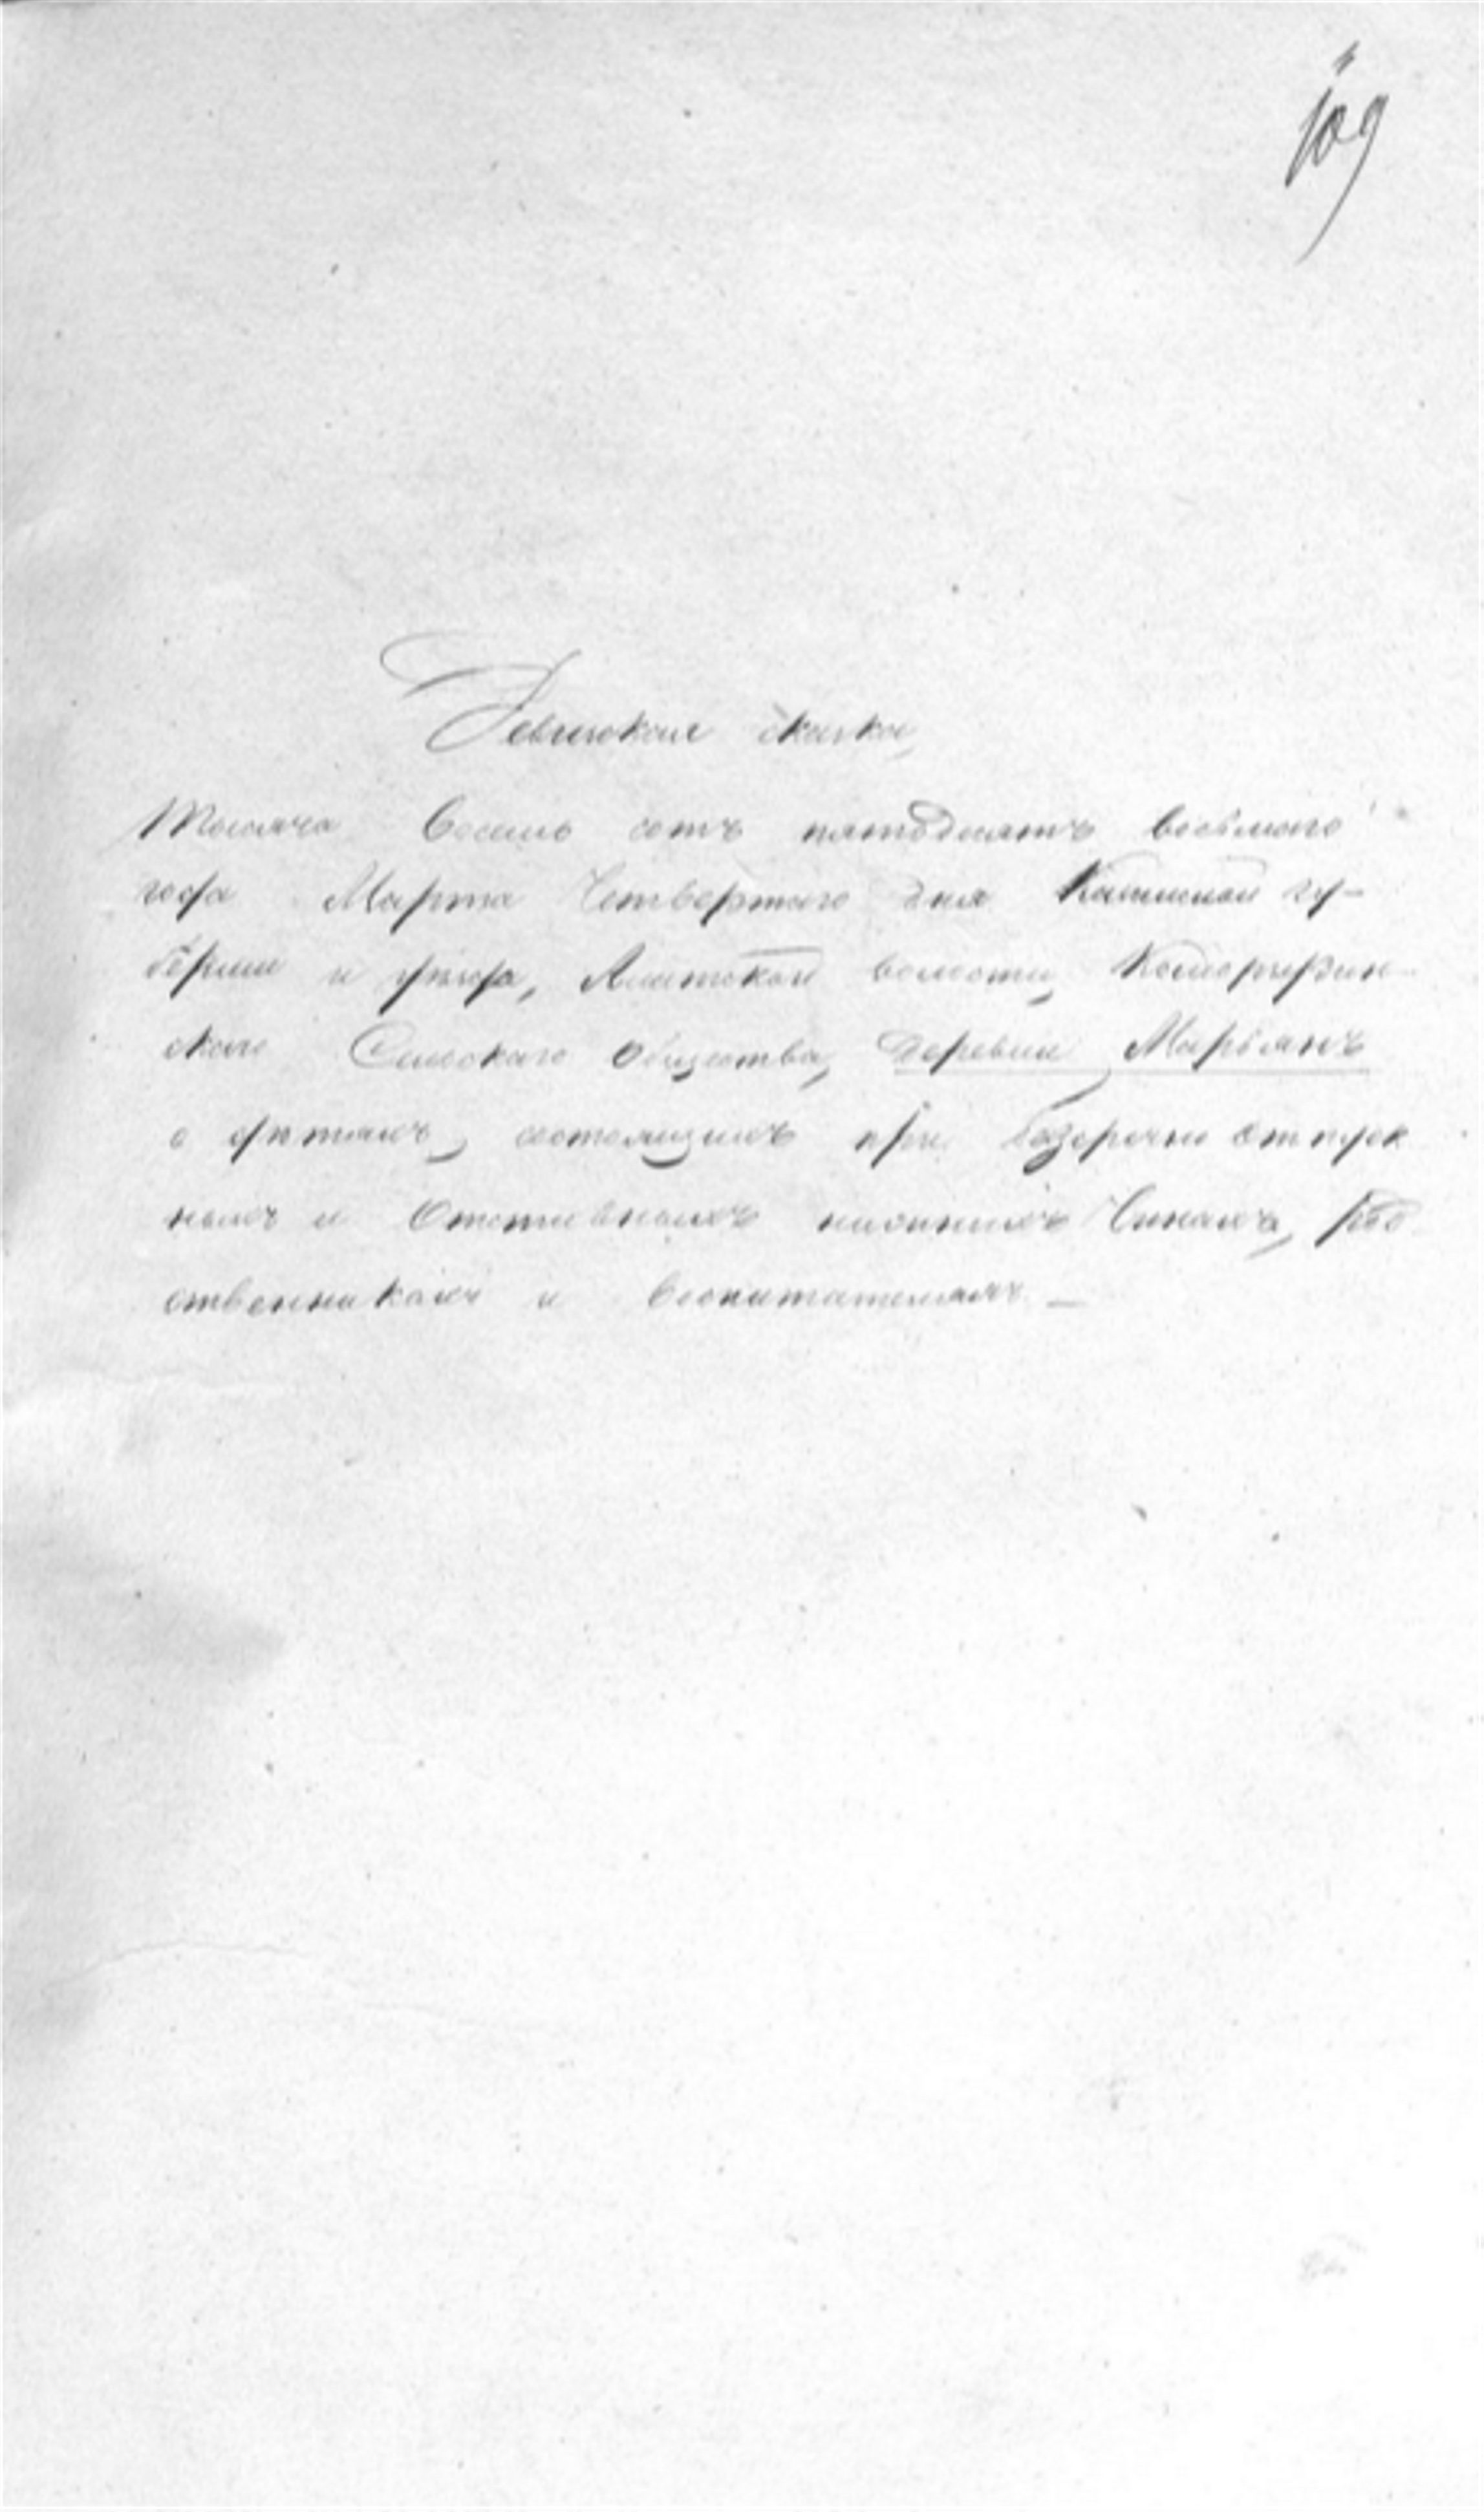 109
Ревизская сказка,
Тысяча восемь сотъ пятьдесятъ восьмаго
года Марта Четвертаго дня Казанской гу-
берніи и уѣзда, Алатской волости,
скаго Сельскаго Общества, деревни Марьянъ
о дѣтяхъ, состоящихъ при безсрочно отпуск
ныхъ и Отставныхъ нижнихъ Чинахъ, род
ственникахъ и воспитателяхъ. —